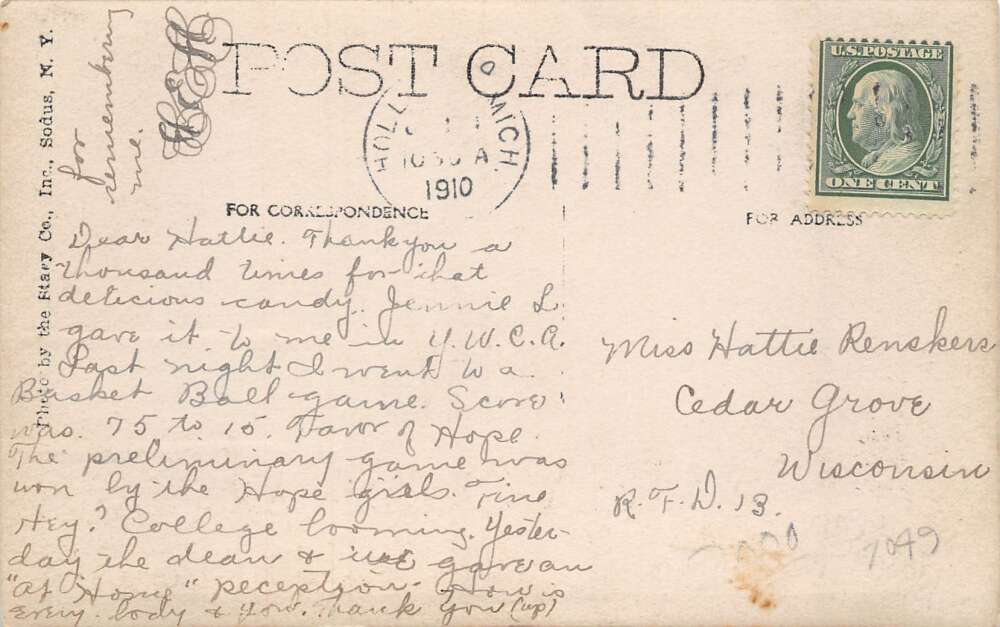 POST CARD
U.S. POSTAGE
ONE CENT
HOLL MICH.
1030 A
1910
FOR CORRESPONDENCE
FOR ADDRESS
Photo by the Stacy Co., Inc., Sodus, N. Y.
Dear Hattie. Thank you a
thousand times for that
delicious candy. Jennie L.
gave it to me in Y.W.C.A.
Last night I went to a
Basket Ball game. Score
was. 75 to 15. Favor of Hope.
The preliminary game was
won by the Hope girls. Fine
Hey? College booming. Yester-
day the dean & gave an
"At Home" reception. How is
every body & you. Thank you (up)
for
remembering
me.
Miss Hattie Renskers
Cedar Grove
Wisconsin
R. F. D. 13.
7049